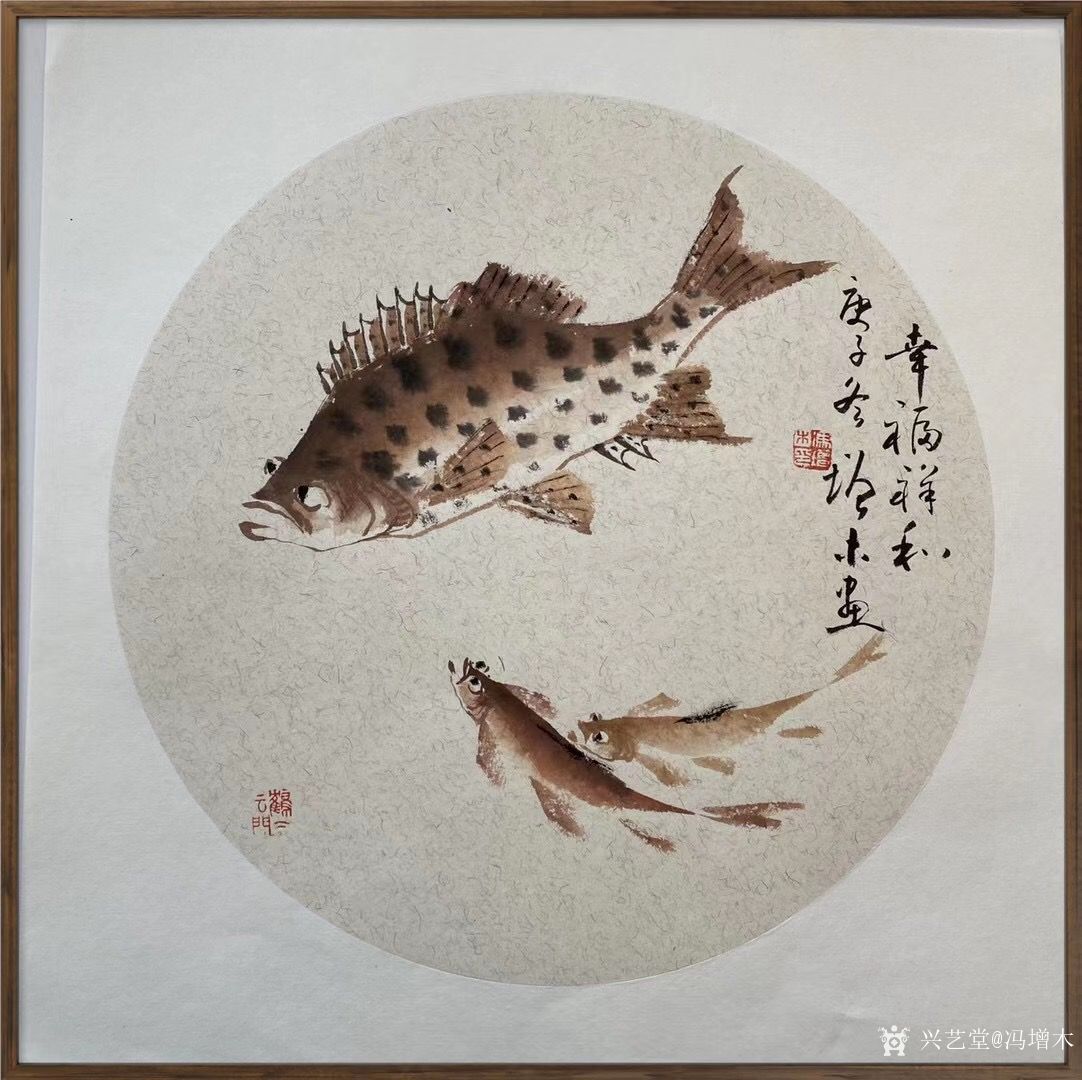 幸福祥和
庚子冬增木画
冯增木印
兴艺堂@冯增木